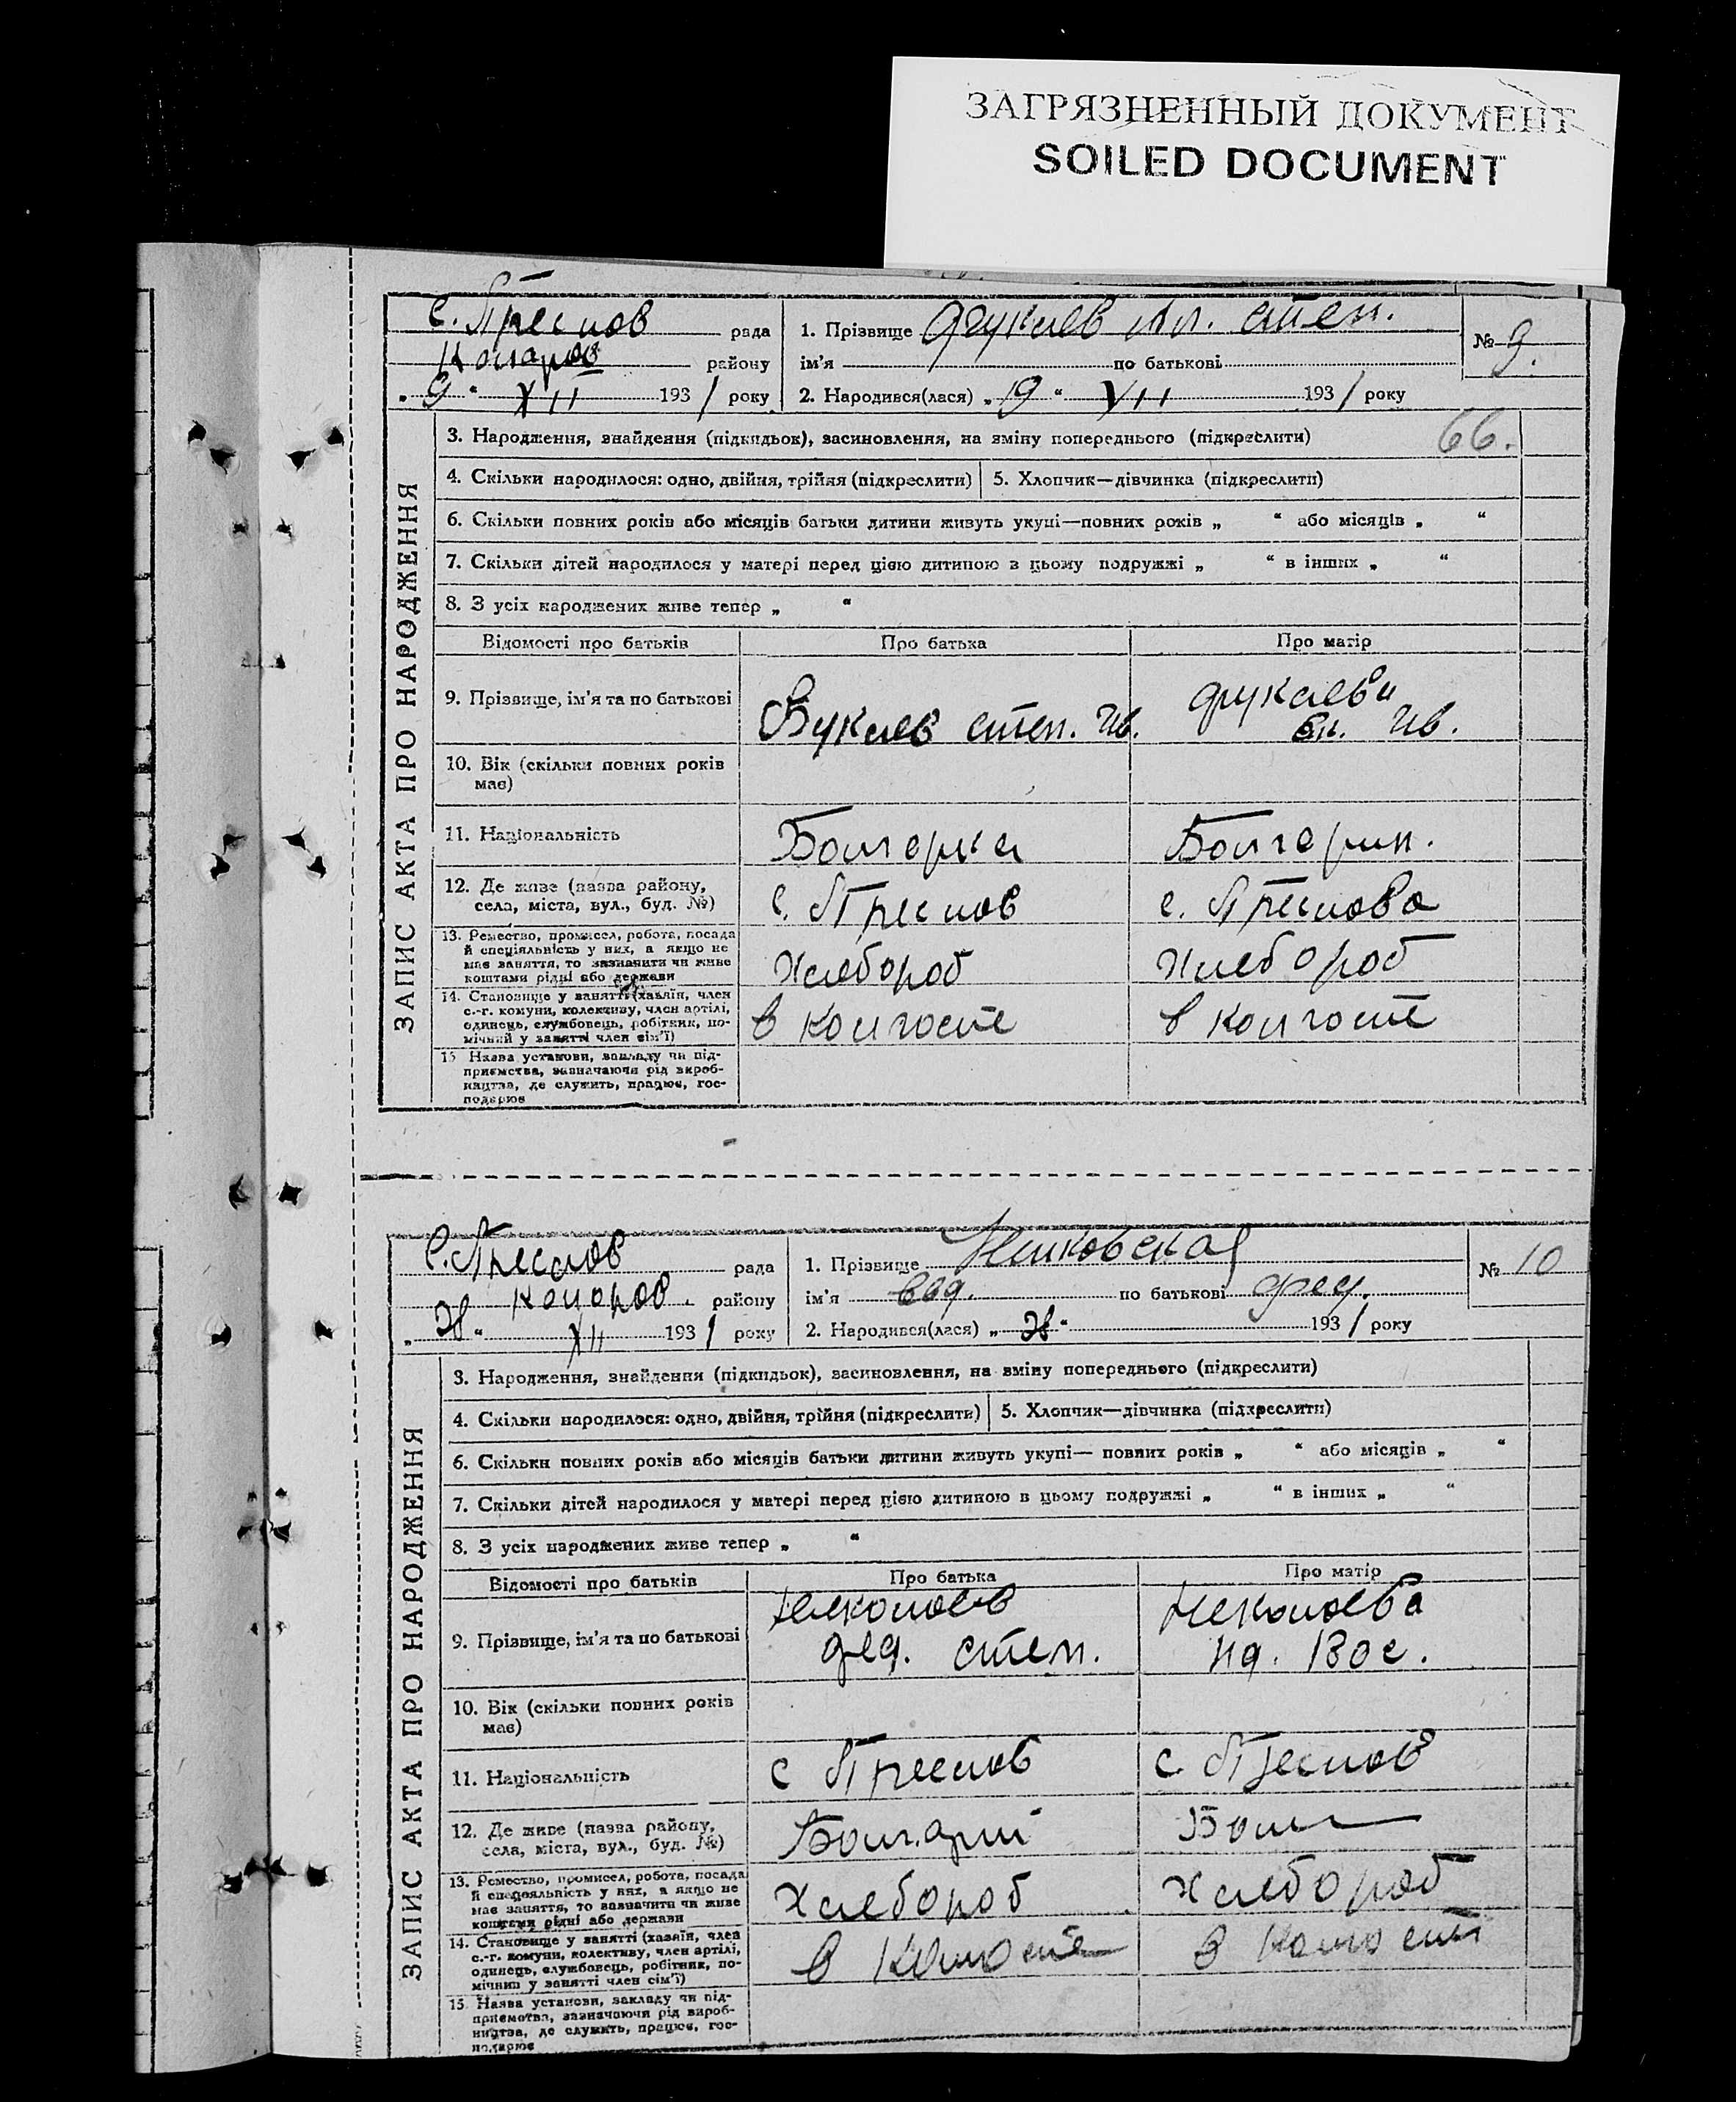 ЗАГРЯЗНЕННЫЙ ДОКУМЕНТ
SOILED DOCUMENT
с. Преслов рада
району
„ 9 “ XII 1931 року
1. Прізвище
ім'я по батькові
2. Народився(лася) „ 19 “ VII 1931 року
№ 9.
66.
ЗАПИС АКТА ПРО НАРОДЖЕННЯ
3. Народження, знайдення (підкидьок), засиновлення, на зміну попереднього (підкреслити)
4. Скільки народилося: одно, двійня, трійня (підкреслити) 5. Хлопчик—дівчинка (підкреслити)
6. Скільки повних років або місяців батьки дитини живуть укупі—повних років „ “ або місяців „ “
7. Скільки дітей народилося у матері перед цією дитиною в цьому подружжі „ “ в інших „ “
8. З усіх народжених живе тепер „ “
Відомості про батьків Про батька Про матір
9. Прізвище, ім'я та по батькові
степ. Ив. Ив.
10. Вік (скільки повних років
має)
11. Національність Болгарка Болгарин.
12. Де живе (назва району,
села, міста, вул., буд. №) с. Преслов с. Преслова
13. Ремество, промисел, робота, посада
й спеціяльність у них, а якщо не
має заняття, то зазначити чи живе
коштами рідні або держави Хлебороб Хлебороб
14. Становище у занятті (хазяїн, член
с.-г. комуни, колективу, член артілі,
одинець, службовець, робітник, по-
мічний у занятті член сім'ї) в колгоспе в колгоспе
15 Назва установи, закладу чи під-
приємства, зазначаючи рід вироб-
ництва, де служить, працює, гос-
подарює
с. Преслов рада
району
„ “ XII 1931 року
1. Прізвище
ім'я по батькові
2. Народився(лася) „ “ 1931 року
№ 10
ЗАПИС АКТА ПРО НАРОДЖЕННЯ
3. Народження, знайдення (підкидьок), засиновлення, на зміну попереднього (підкреслити)
4. Скільки народилося: одно, двійня, трійня (підкреслити) 5. Хлопчик—дівчинка (підкреслити)
6. Скільки повних років або місяців батьки дитини живуть укупі— повних років „ “ або місяців „ “
7. Скільки дітей народилося у матері перед цією дитиною в цьому подружжі „ “ в інших „ “
8. З усіх народжених живе тепер „ “
Відомості про батьків Про батька Про матір
9. Прізвище, ім'я та по батькові
степ.
10. Вік (скільки повних років
має)
11. Національність с Преслов с. Преслов
12. Де живе (назва району,
села, міста, вул., буд. №) Болг
13. Ремество, промисел, робота, посада
й спеціяльність у них, а якщо не
має заняття, то зазначити чи живе
коштами рідні або держави Хлебороб Хлебороб
14. Становище у занятті (хазяїн, член
с.-г. комуни, колективу, член артілі,
одинець, службовець, робітник, по-
мічний у занятті член сім'ї) в в
15 Назва установи, закладу чи під-
приємства, зазначаючи рід вироб-
ництва, де служить, працює, гос-
подарює